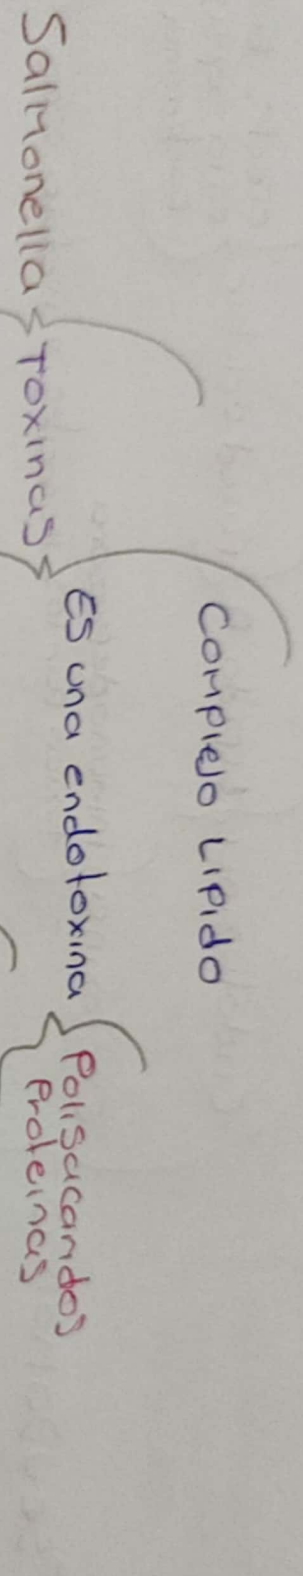 Salmonella
Toxinas
Complejo Lipido
Es una endotoxina
Polisacaridos
Proteinas